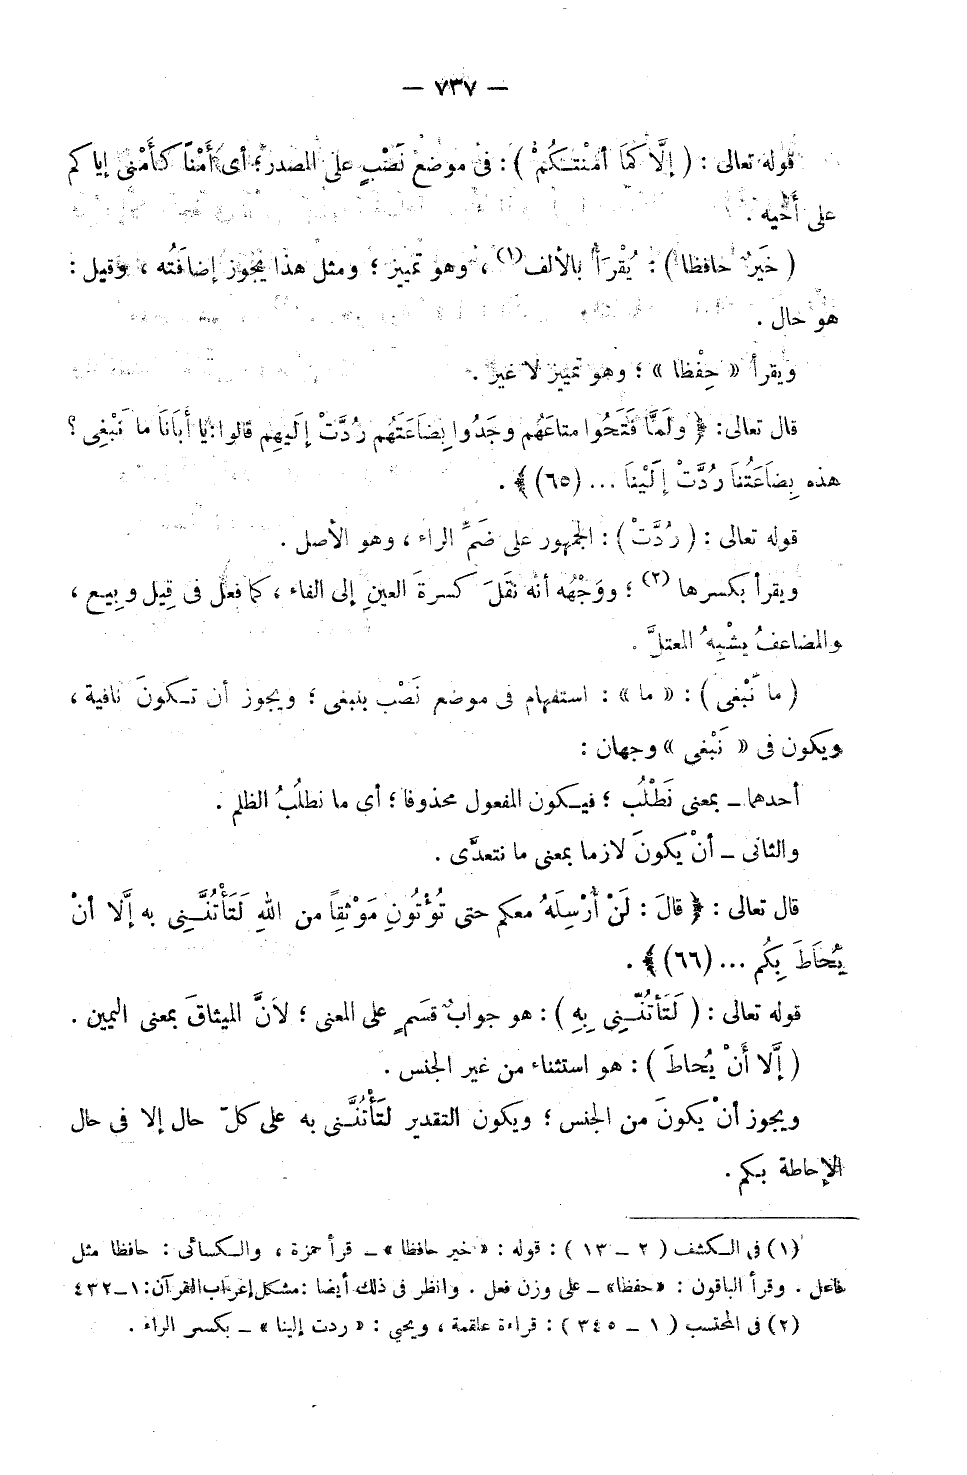 — ٧٣٧ —
قوله تعالى : ( إلَّا كمَا أمنْتـكُمْ ) : فى موضع نَصْبٍ على المصدر ؛ أى أَمْناً كأَمْنى إياكم
على أَخيه .
( خَيرٌ حافظا ) : يُقْرَأُ بالألف(١) ، وهو تمييز ؛ ومثل هذا يجوز إضافَتُه ، وقيل :
هو حال .
ويقرأ « حِفْظا » ؛ وهو تمييز لا غير .
قال تعالى : ﴿ ولَمَّا فَتَحُوا متاعَهُم وجَدُوا بِضَاعَتَهُم رُدَّتْ إلَيهِم قالوا : يَا أَبَانَا ما نَبْغِى ؟
هذه بِضَاعَتُنَا رُدَّتْ إِلَيْنَا ... (٦٥) ﴾ .
قوله تعالى : ( رُدَّتْ ) : الجمهور على ضَمِّ الراء ، وهو الأصل .
ويقرأ بكسرها (٢) ؛ ووَجْهُه أنه نقَلَ كسرةَ العينِ إلى الفاء ، كما فعل فى قِيل وبِيـع ،
والمضاعفُ يشْبِهُ المعتلَّ .
( ما نَبْغى ) : « ما » : استفهام فى موضع نَصْب بنبغى ؛ ويجوز أن تـكونَ نافية ،
ويكون فى « نَبْغى » وجهان :
أحدهما ـ بمعنى نَطْلُب ؛ فيـكون المفعول محذوفا ؛ أى ما نطلُبُ الظلم .
والثانى ـ أنْ يكونَ لازما بمعنى ما نتعدَّى .
قال تعالى : ﴿ قالَ : لَنْ أُرْسِلَهُ معكم حتى تُؤْتُونِ مَوْثِقاً من اللهِ لَتَأْتُنَّـنِى به إلَّا أنْ
يُحَاطَ بِكُم ... (٦٦) ﴾ .
قوله تعالى : ( لَتَأتُنَّـنِى بِهِ ) : هو جوابُ قسَمٍ على المعنى ؛ لأنَّ الميثاقَ بمعنى اليمين .
( إلَّا أَنْ يُحاطَ ) : هو استثناء من غير الجنس .
ويجوز أنْ يكونَ من الجنس ؛ ويكون التقدير لتَأْتُنَّـنى به على كلّ حال إلا فى حال
الإحاطة بـكم .
(١) فى الـكشف ( ٢ ـ ١٣ ) : قوله : « خير حافظا » ـ قرأ حمزة ، والـكسائى : حافظا مثل
فاعل . وقرأ الباقون : «حفظا» ـ على وزن فعل . وانظر فى ذلك أيضا : مشكل إعراب القرآن : ١ـ٤٣٢
(٢) فى المحتسب ( ١ ـ ٣٤٥ ) : قراءة علقمة ، ويحيى : « ردت إلينا » ـ بكسر الراء .